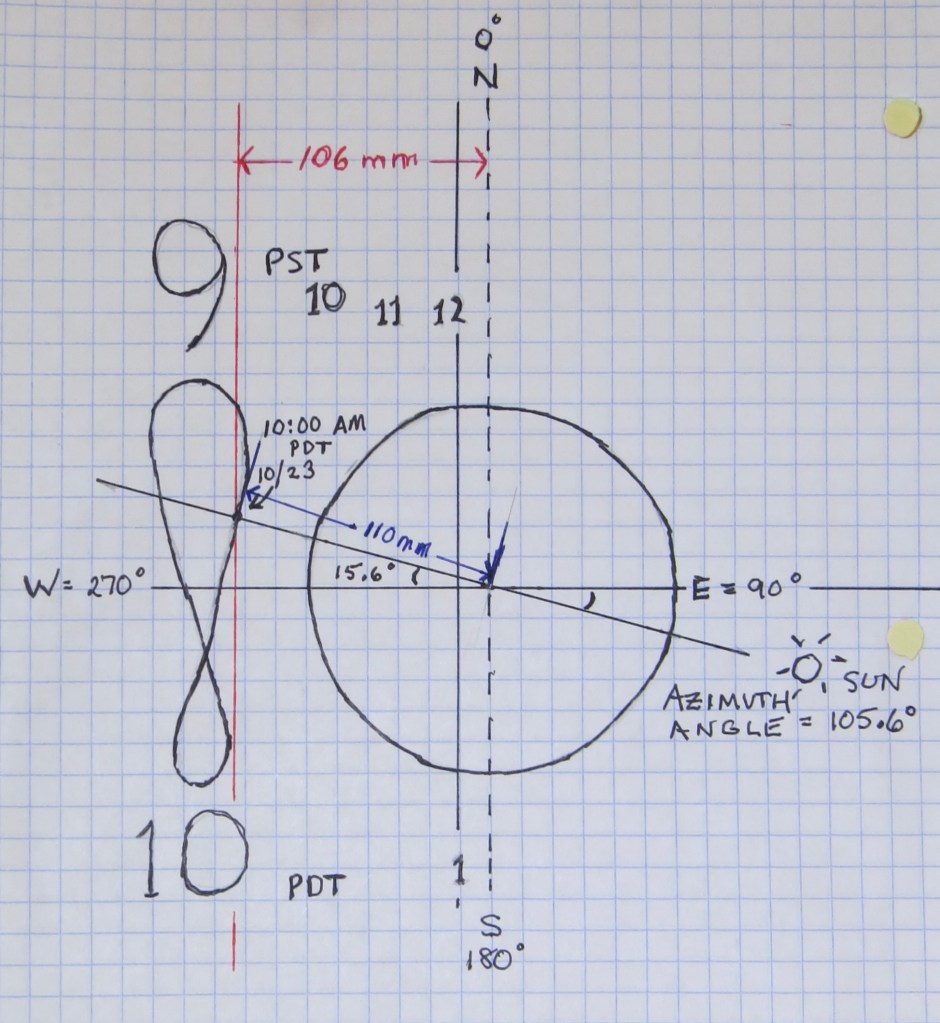 0°
N
106 mm
9 PST
10 11 12
10:00 AM
PDT
10/23
110mm
15.6°
W = 270°
E = 90°
SUN
AZIMUTH
ANGLE = 105.6°
10 PDT
1
S
180°